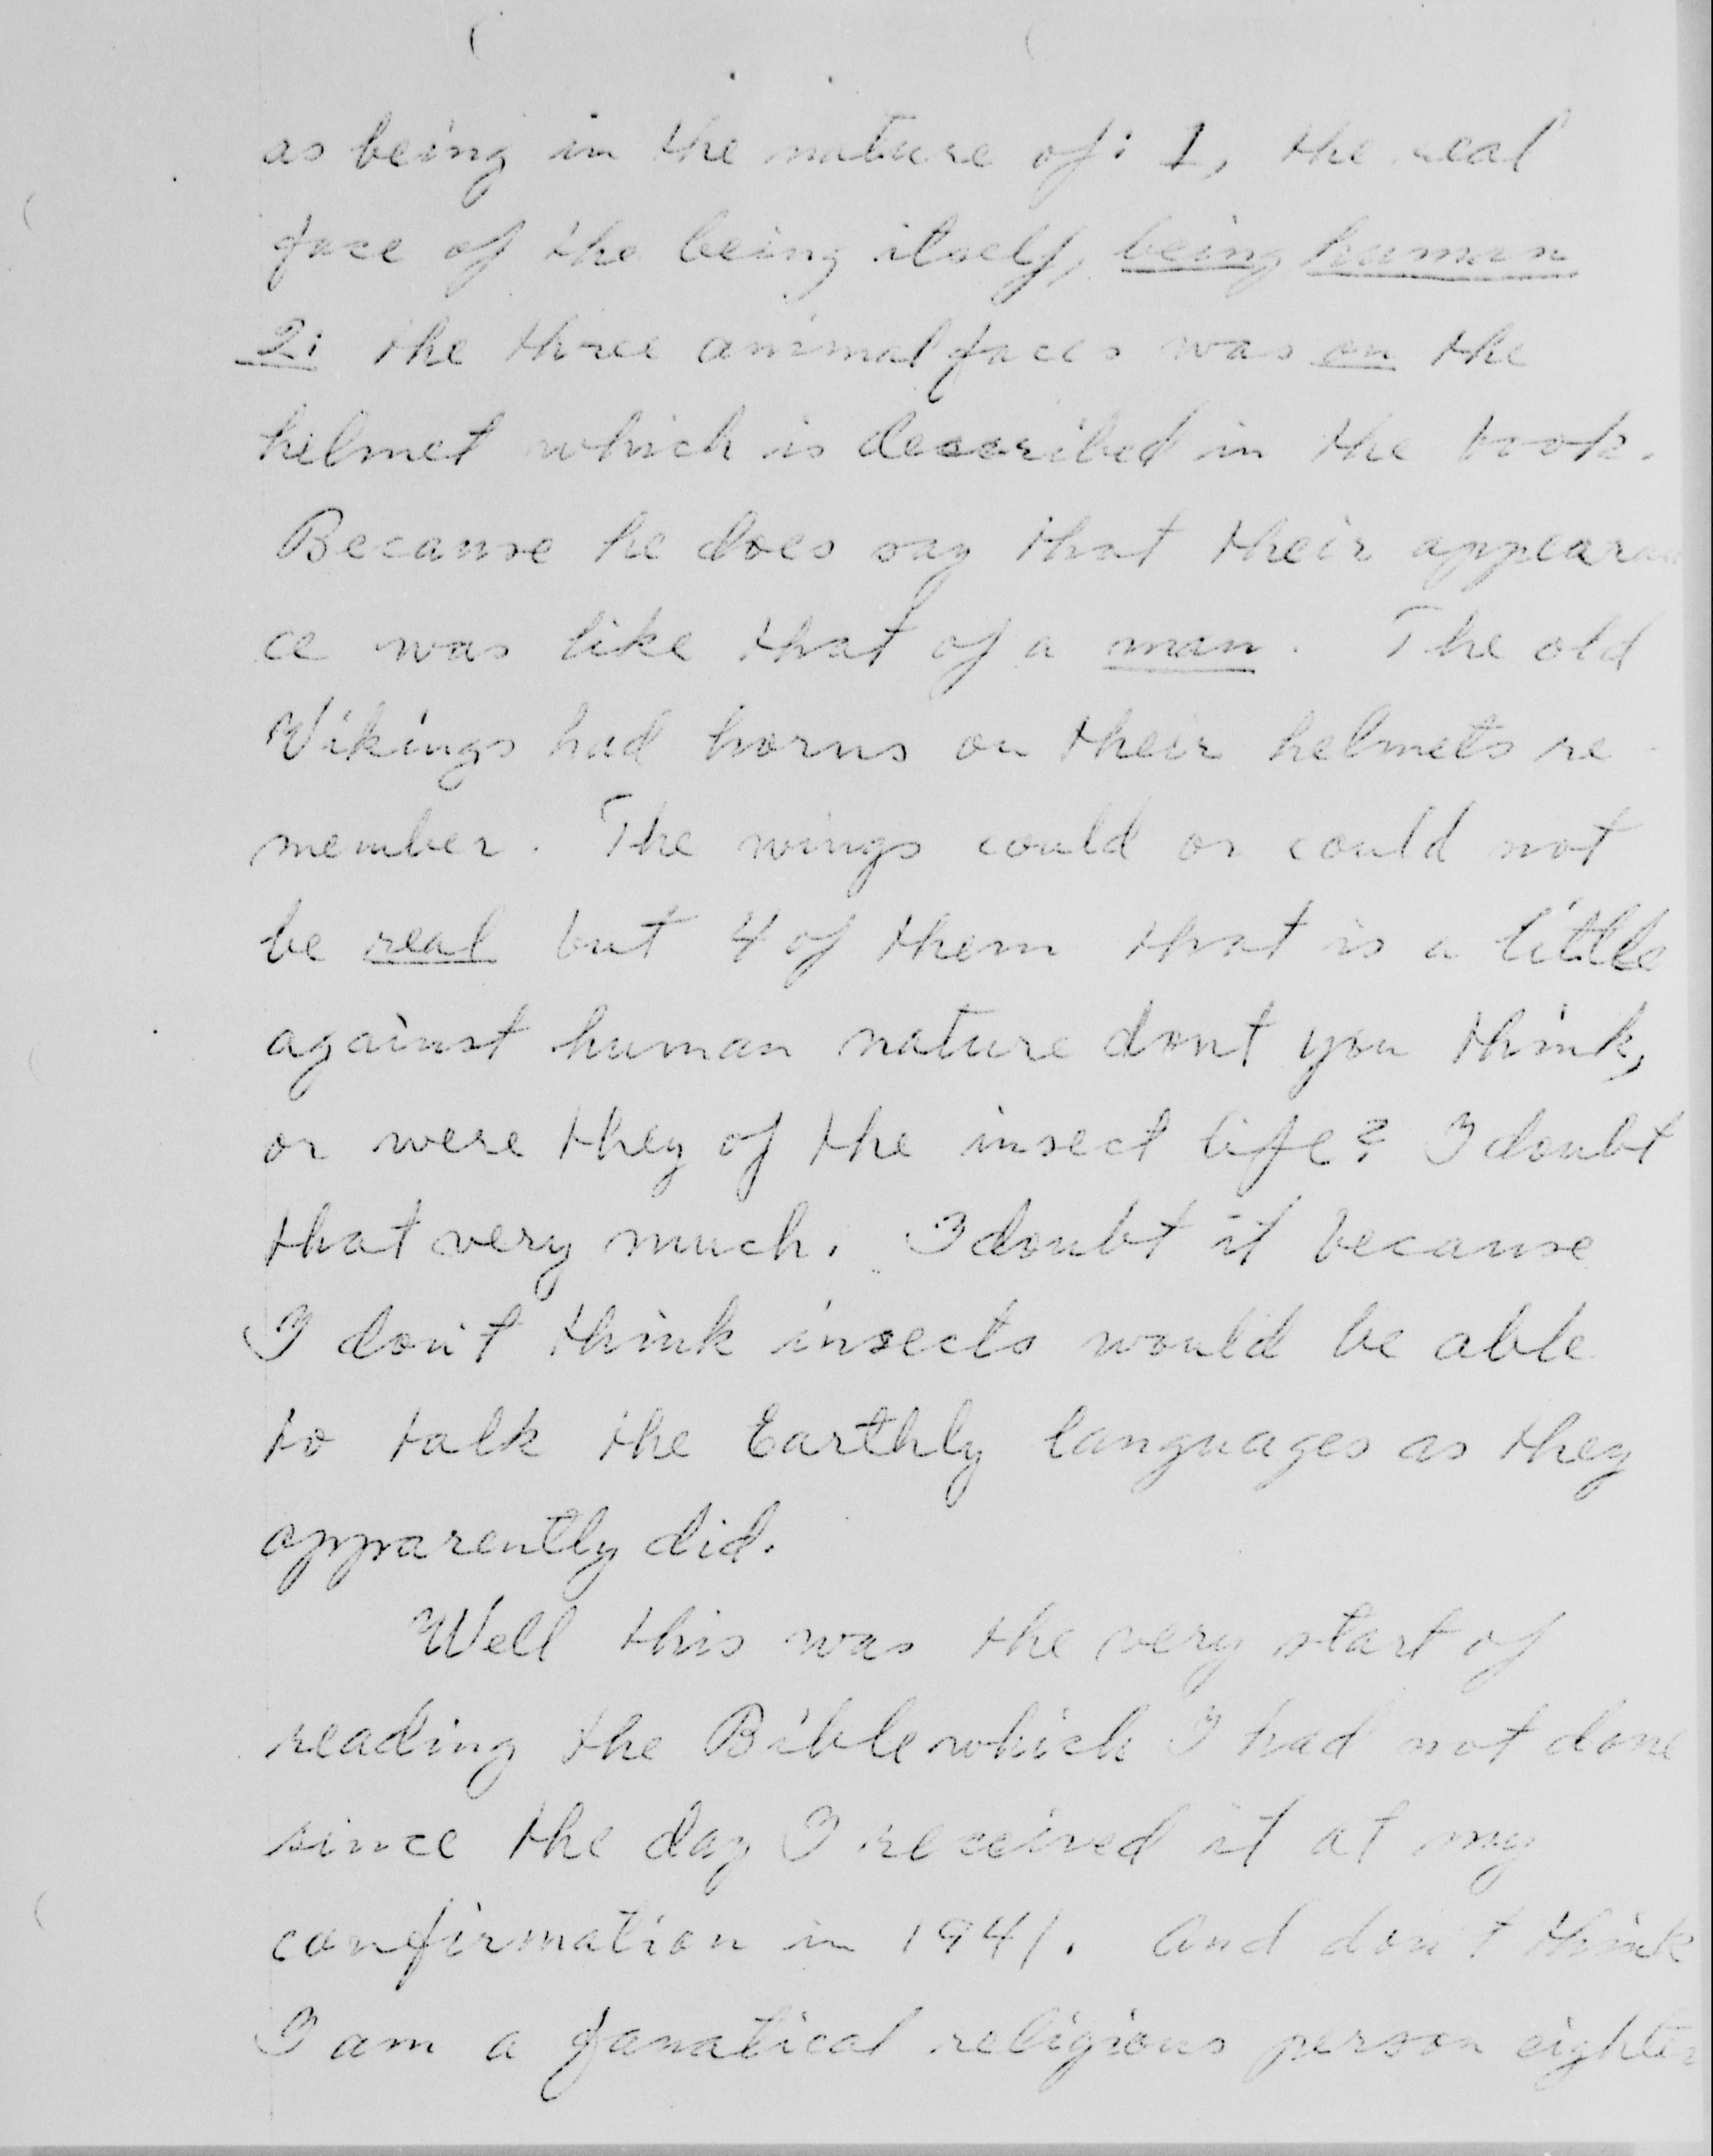 as being in the nature of: 1, the real
face of the being itself, being human
2: the three animal faces was on the
helmet which is described in the book.
Because he does say that their appearan
ce was like that of a man. The old
Vikings had horns on their helmets re-
member. The wings could or could not
be real but 4 of them that is a little
against human nature dont you think,
or were they of the insect life? I doubt
that very much. I doubt it because
I don't think insects would be able
to talk the Earthly languages as they
apparently did.
Well this was the very start of
reading the Bible which I had not done
since the day I received it at my
confirmation in 1941. And don't think
I am a fanatical religious person eighter